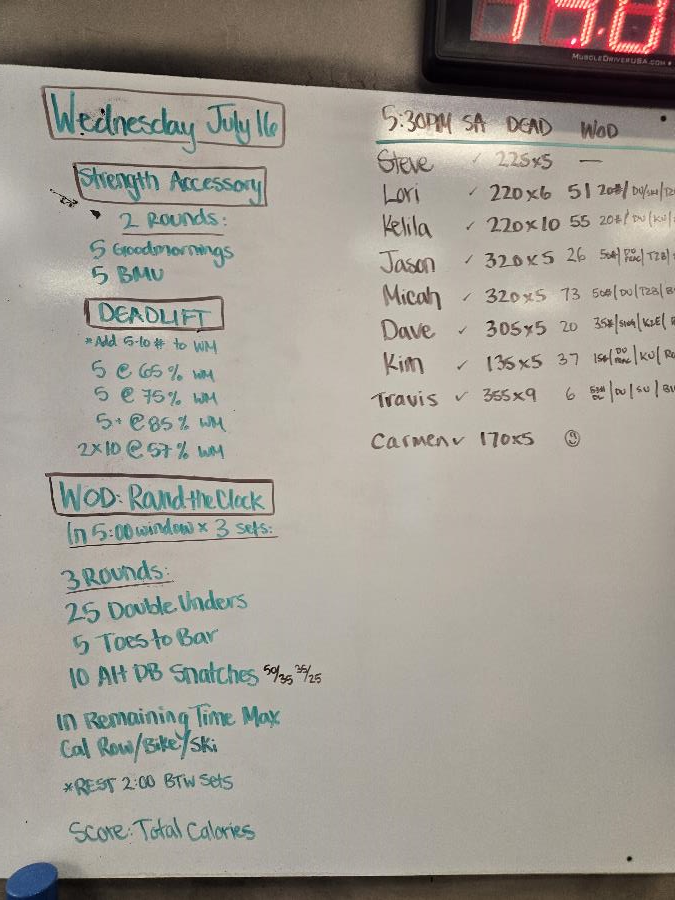 MuscleDriverUSA.com
Wednesday July 16
Strength Accessory
2 Rounds:
5 Goodmornings
5 BMU
DEADLIFT
*Add 5-10# to WM
5 @ 65% WM
5 @ 75% WM
5+ @ 85% WM
2x10 @ 57% WM
WOD: Round the Clock
In 5:00 window x 3 sets:
3 Rounds:
25 Double Unders
5 Toes to Bar
10 Alt DB Snatches 50/35 35/25
In Remaining Time Max
Cal Row/Bike/Ski
*REST 2:00 BTW Sets
Score: Total Calories
5:30PM SA DEAD WOD
Steve ✓ 225x5 —
Lori ✓ 220x6 51 20#/
Kelila ✓ 220x10 55 20#/ DU/KU/
Jason ✓ 320x5 26 50#/ T2B/
Micah ✓ 320x5 73 50#/DU/T2B/
Dave ✓ 305x5 20 35#/ K2E/
Kim ✓ 135x5 37 15#/ KU/
Travis ✓ 355x9 6 DU/SU/
Carmen ✓ 170x5 ☺